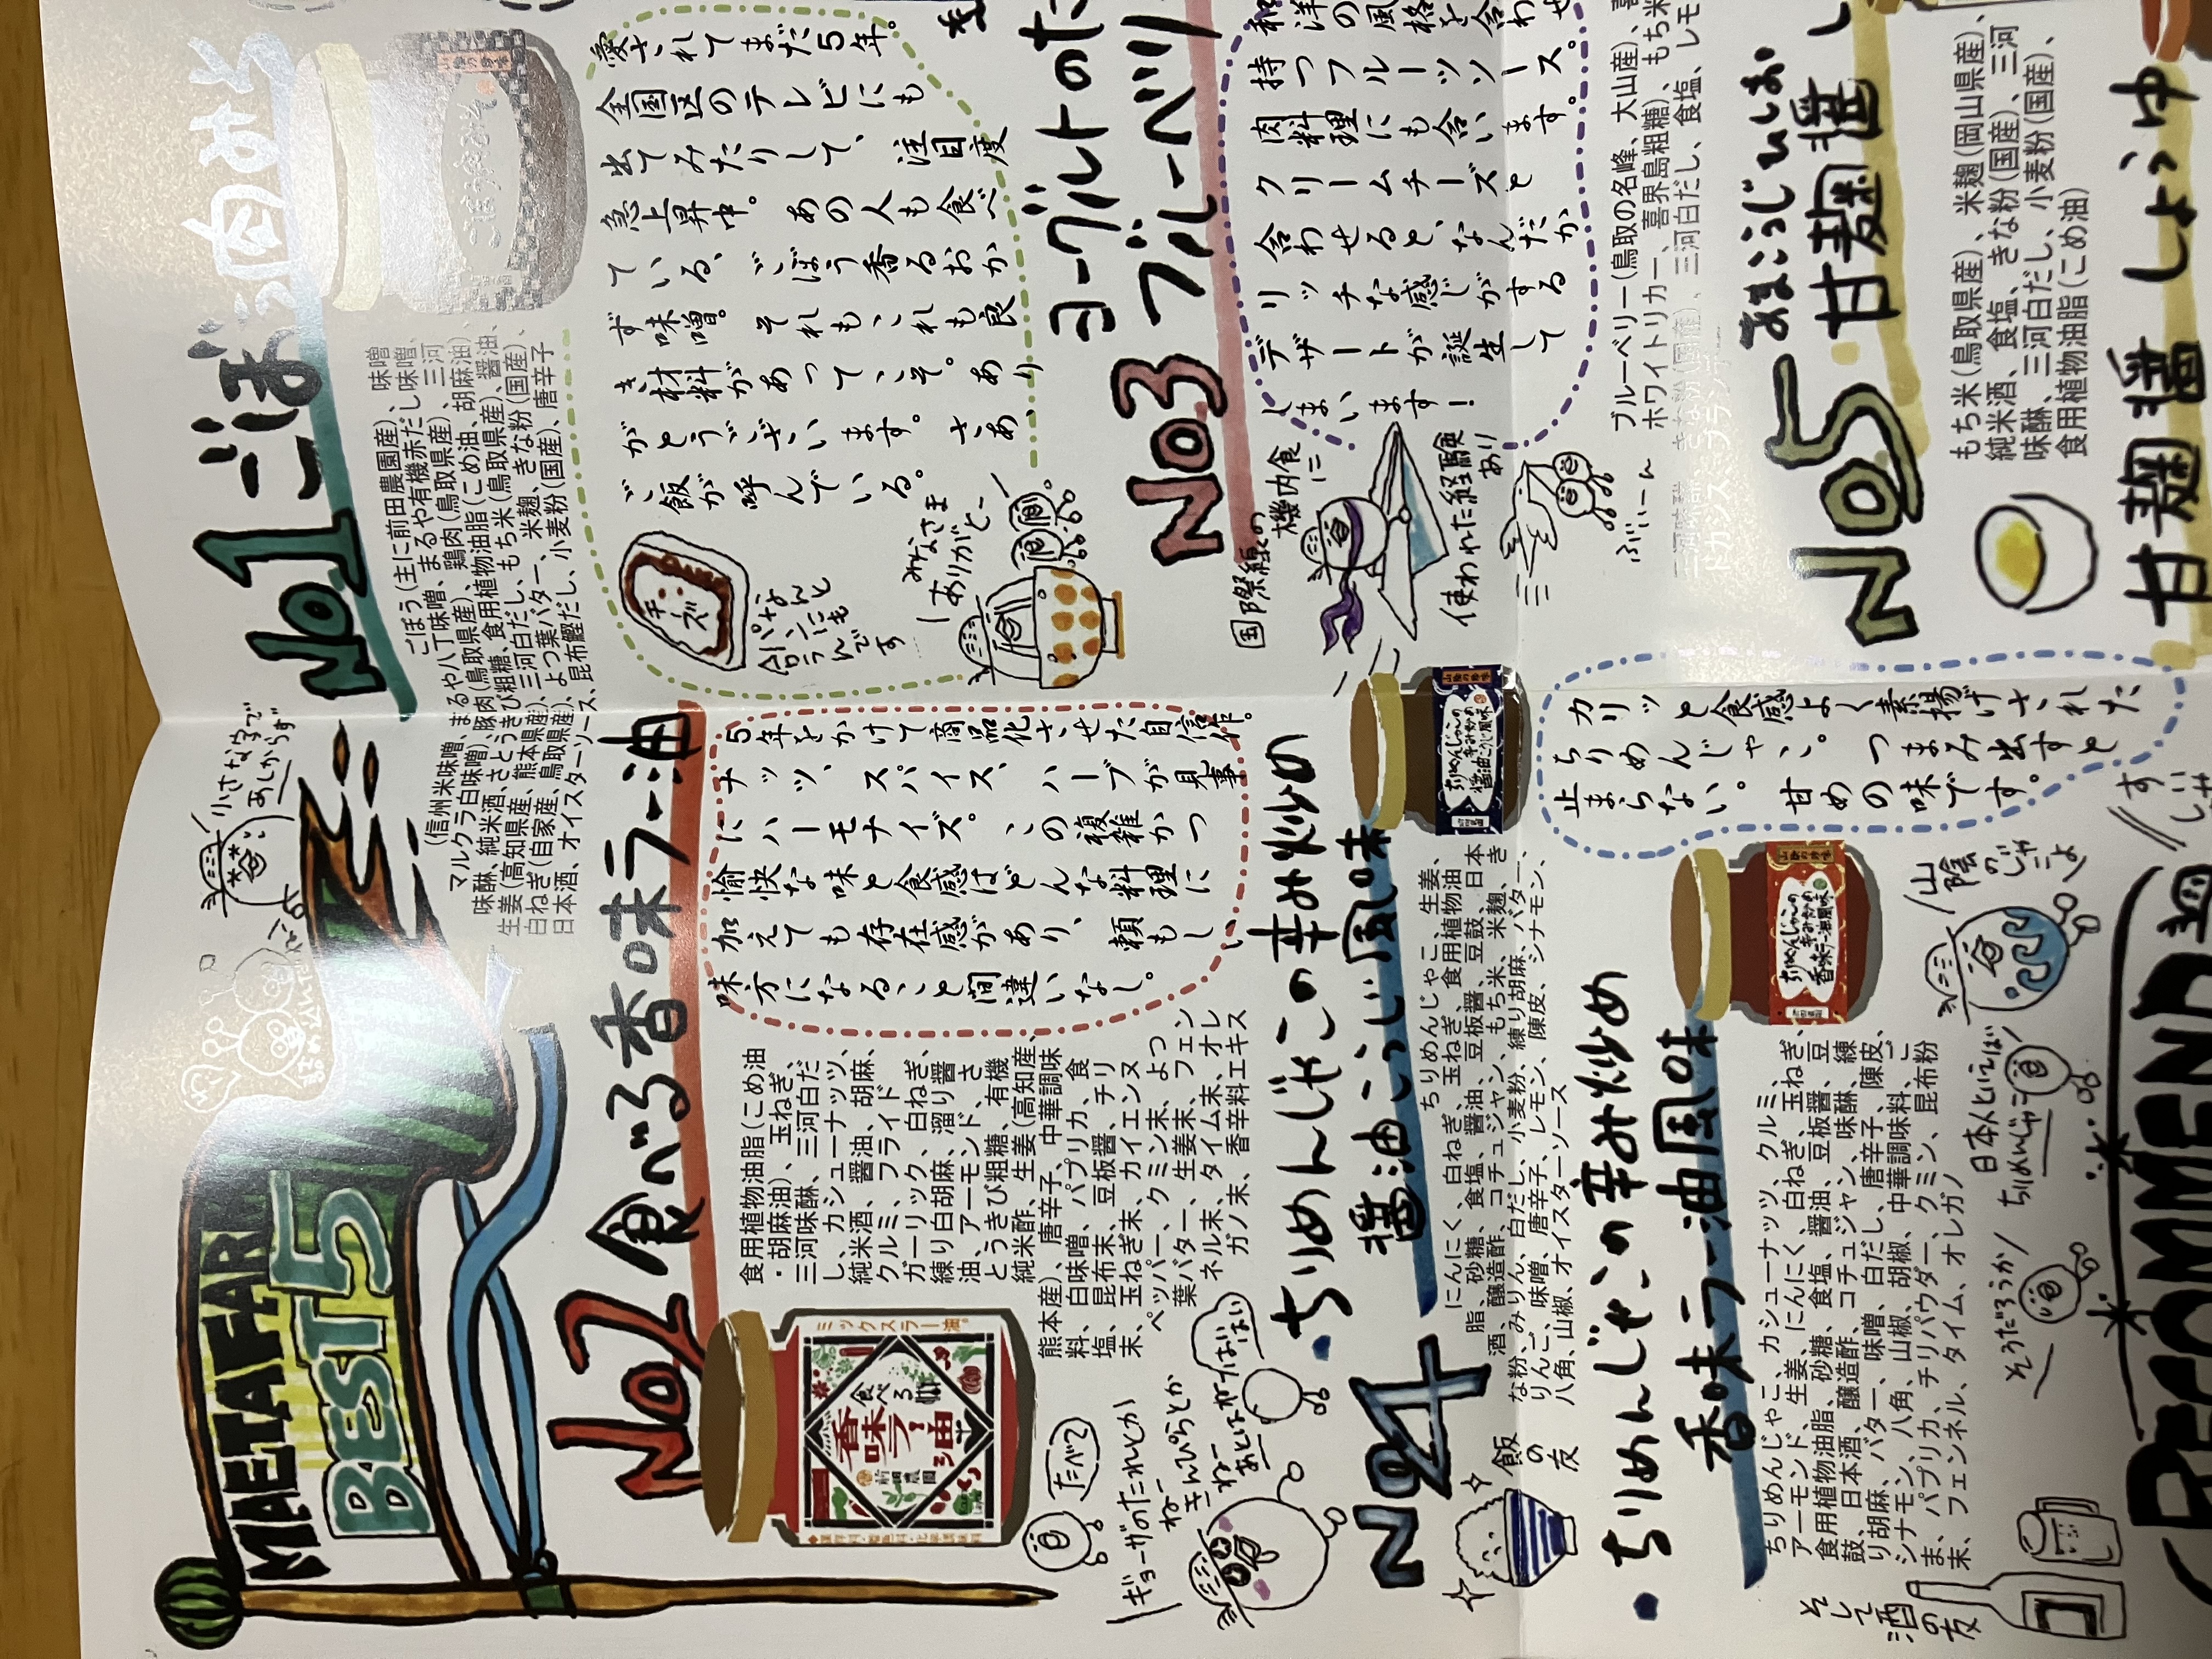 MAETAFAR
BEST 5
小さな字で
あしからず
No.1 ごぼう肉みそ
ごぼう(主に前田農園産)、味噌
(信州米味噌、まるや八丁味噌、まるや有機赤だし味噌、
マルクラ白味噌)、豚肉(鳥取県産)、鶏肉(鳥取県産)、三河
味醂、純米酒、さとうきび粗糖、食用植物油脂(こめ油、胡麻油)、
生姜(高知県産、熊本県産)、三河白だし、もち米(鳥取県産)、醤油、
白ねぎ(自家産、鳥取県産)、よつ葉バター、米麹、きな粉(国産)、
日本酒、オイスターソース、昆布鰹だし、小麦粉(国産)、唐辛子
愛されてまだ5年。
全国区のテレビにも
出てみたりして、注目度
急上昇中。あの人も食べ
ている、ごぼう香るおか
ず味噌。それも、これも良
き材料があって、こそ。あり
がとうございます。さあ、
ご飯が呼んでいる。
チーズ
食パンなんと
みなさま
ありがとー
No2 食べる香味ラー油
食用植物油脂(こめ油
・胡麻油)、玉ねぎ、
三河味醂、三河白だ
し、カシューナッツ、
純米酒、醤油、胡麻、
クルミ、フライド
ガーリック、白ねぎ、
練り白胡麻、溜り醤
油、アーモンド、さ
とうきび粗糖、有機
純米酢、生姜(高知産、
熊本産)、唐辛子、中華調味
料、白味噌、パプリカ、食
塩、昆布末、豆板醤、チリ
末、玉ねぎ末、カイエンヌ
ペッパー、クミン末、よつ
葉バター、生姜末、フェン
ネル末、タイム末、オレ
ガノ末、香辛料エキス
5年をかけて商品化させた自信作。
ナッツ、スパイス、ハーブが見事
にハーモナイズ。この複雑かつ
愉快な味と食感はどんな料理に
加えても存在感があり、頼もしい
味方になること間違いなし。
ミックスラー油。
食べる
香味ラー油
前田農園
たべて
ギョーザのたれとか
ねー
きんぴらとか
ねー
あとはがんばー
がんばい
No3 ヨーグルトのた
ブルーベリ
和洋の風格を合わせ
持つフルーツソース。
肉料理にも合います。
クリームチーズと
合わせると、なんだか
リッチな感じがする
デザートが誕生して
しまいます!
国際線の
機内食に
使われた経験
あり
ぶいーん
ブルーベリー(鳥取の名峰、大山産)、
ホワイトリカー、喜界島粗糖)、もち米
三河白だし、食塩、レモ
No4 ・ちりめんじゃこの辛み炒め
醤油こうじ風味
ちりめんじゃこ、生姜、
にんにく、白ねぎ、玉ねぎ、食用植物油
脂、砂糖、食塩、醤油、豆板醤、豆鼓、日本
酒、醸造酢、コチュジャン、もち米、米麹、き
な粉、みりん、白だし、小麦粉、練り胡麻、バター、
りんご、味噌、唐辛子、レモン、陳皮、シナモン、
八角、山椒、オイスターソース
飯の友
・ちりめんじゃこの辛み炒め
香味ラー油風味
ちりめんじゃこ、カシューナッツ、クルミ、
アーモンド、生姜、にんにく、白ねぎ、玉ねぎ、
食用植物油脂、砂糖、食塩、醤油、豆板醤、豆
鼓、日本酒、醸造酢、コチュジャン、味醂、練
り胡麻、バター、味噌、白だし、唐辛子、陳皮、
シナモン、八角、山椒、胡椒、中華調味料、ご
ま、パプリカ、チリパウダー、クミン、昆布粉
末、フェンネル、タイム、オレガノ
カリッと食感よく素揚げされた
ちりめんじゃこ。つまみ出すと
止まらない。甘めの味です。
山陰の
じゃこよ
日本人といえば
ちりめんじゃこ
そうだろうか
そして酒の友
No5 あまこうじひしお
・甘麹醤
もち米(鳥取県産)、米麹(岡山県産)、
純米酒、食塩、きな粉(国産)、三河
味醂、三河白だし、小麦粉(国産)、
食用植物油脂(こめ油)
甘麹醤 しょうゆ
RECOMMEND